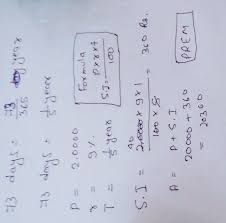 73 days = 73/365 year
73 days = 1/5 year
P = 2.0000
r = 9%
T = 1/5 year
Formula
S.I = P×r×t/100
S.I = 20000×9×1/100×5 = 360 Rs.
40
A = P+S.I
20000+360
= 20360
PREM